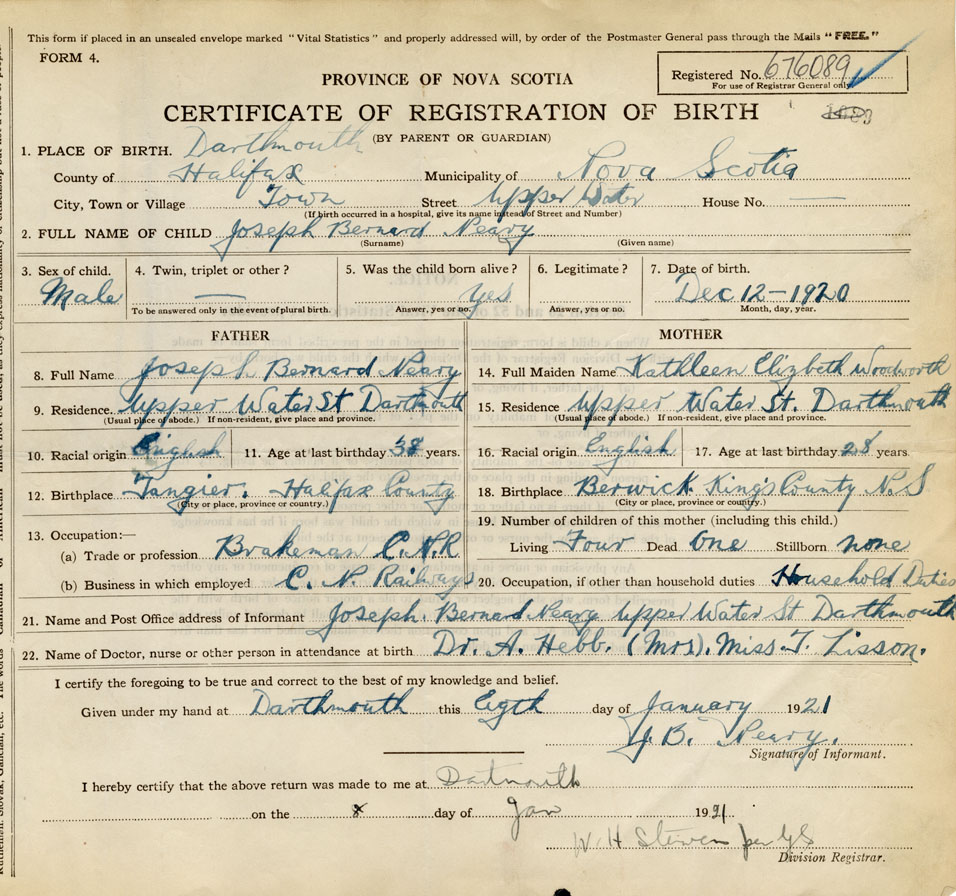 This form if placed in an unsealed envelope marked "Vital Statistics" and properly addressed will, by order of the Postmaster General pass through the Mails "FREE."
FORM 4.
PROVINCE OF NOVA SCOTIA
Registered No. 676089
For use of Registrar General only
CERTIFICATE OF REGISTRATION OF BIRTH
(BY PARENT OR GUARDIAN)
1. PLACE OF BIRTH. Darthmouth
County of Halifax Municipality of Nova Scotia
City, Town or Village Town Street Upper Water House No. —
(If birth occurred in a hospital, give its name instead of Street and Number)
2. FULL NAME OF CHILD Joseph Bernard Neary
(Surname) (Given name)
3. Sex of child. 4. Twin, triplet or other? 5. Was the child born alive? 6. Legitimate? 7. Date of birth.
Male — Yes Dec 12-1920
To be answered only in the event of plural birth. Answer, yes or no. Answer, yes or no. Month, day, year.
FATHER MOTHER
8. Full Name Joseph Bernard Neary 14. Full Maiden Name Kathleen Elizbeth Woodworth
9. Residence. Upper Water St Dartmouth 15. Residence Upper Water St. Darthmouth
(Usual place of abode.) If non-resident, give place and province. (Usual place of abode.) If non-resident, give place and province.
10. Racial origin English 11. Age at last birthday 38 years. 16. Racial origin English 17. Age at last birthday 28 years.
12. Birthplace Tangier. Halifax County 18. Birthplace Berwick King's County N.S
(City or place, province or country.) (City or place, province or country.)
13. Occupation:— 19. Number of children of this mother (including this child.)
(a) Trade or profession Brakeman C.N.R Living Four Dead One Stillborn none
(b) Business in which employed C. N. Railways 20. Occupation, if other than household duties Household Duties
21. Name and Post Office address of Informant Joseph. Bernard Neary Upper Water St Darthmouth
22. Name of Doctor, nurse or other person in attendance at birth Dr. A. Hebb. (Mrs). Miss. T. Lisson.
I certify the foregoing to be true and correct to the best of my knowledge and belief.
Given under my hand at Darthmouth this Egth day of January 1921
J. B. Neary.
Signature of Informant.
I hereby certify that the above return was made to me at Dartmouth
on the 8 day of Jan 1921
W. H Steven per
Division Registrar.